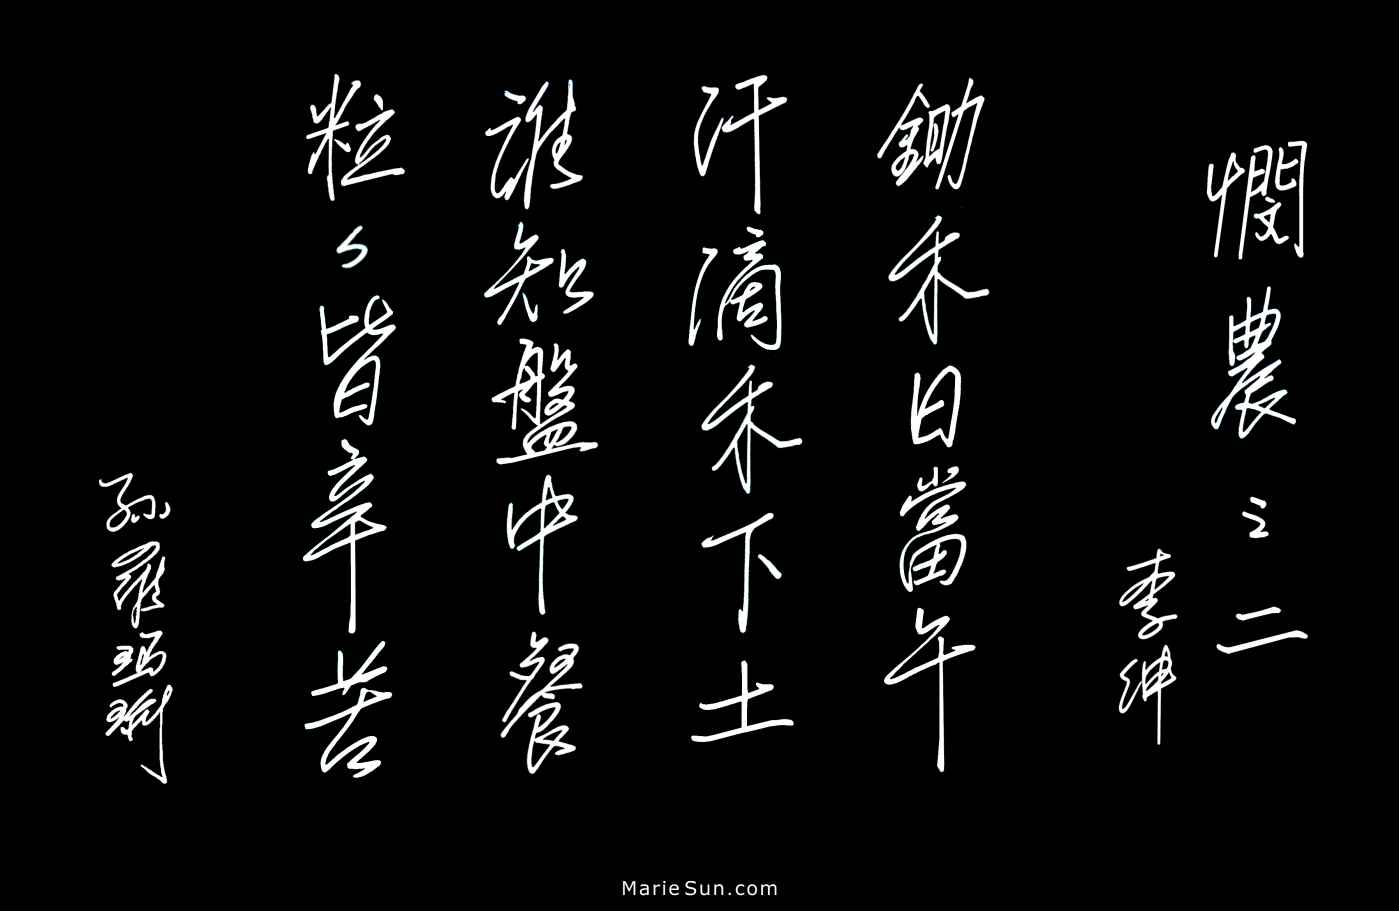 憫農之二
李紳
鋤禾日當午
汗滴禾下土
誰知盤中餐
粒々皆辛苦
孫羅瑪琍
MarieSun.com